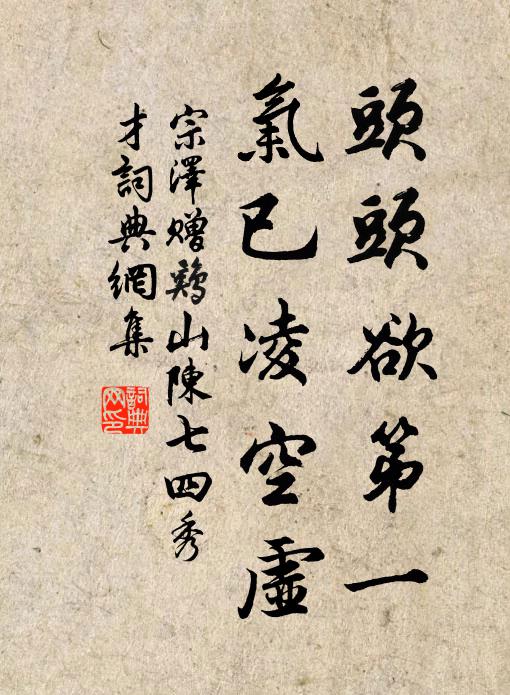 頭頭欲第一
氣已凌空虛
宗澤贈鷄山陳七四秀
才詞典網集
詞典
网印